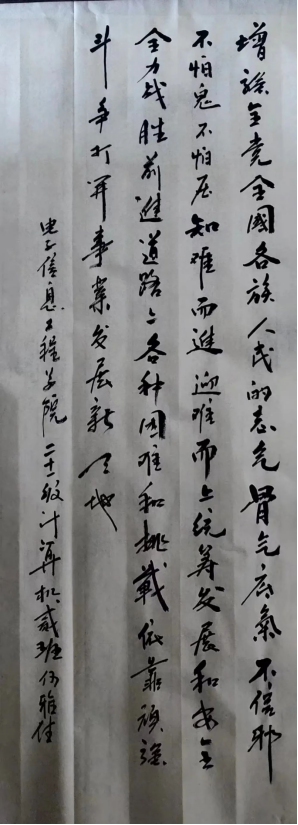 增强全党全國各族人民的志气骨气底氣不信邪
不怕鬼不怕压知难而進迎难而上统筹发展和安全
全力战胜前進道路上各种困难和挑戰依靠顽强
斗争打开事業发展新天地
电子信息工程学院二十一级计算机贰班何雅佳